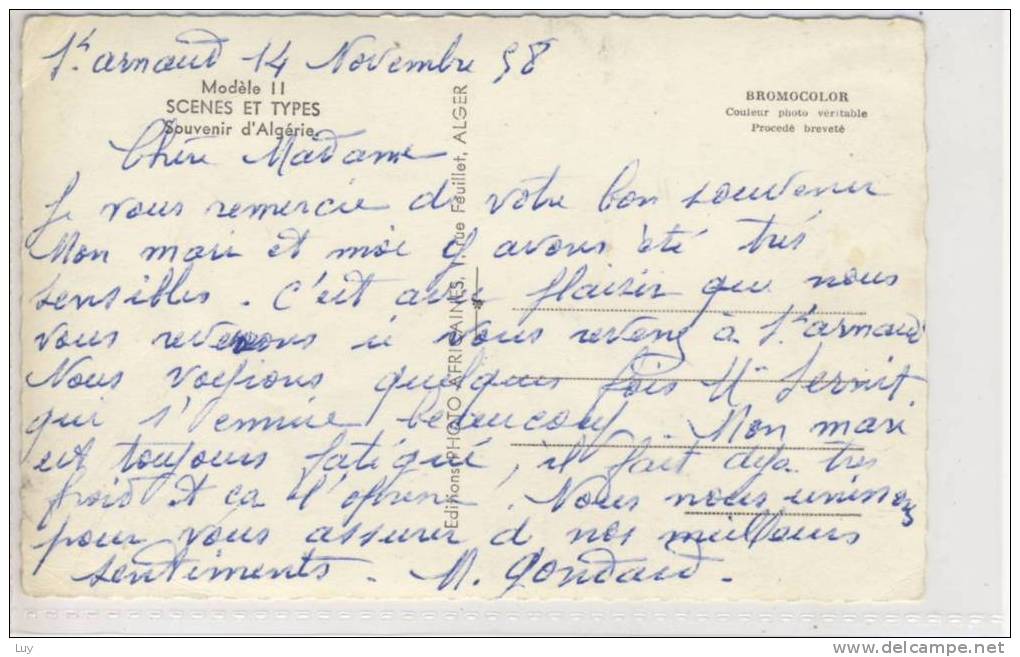 St arnaud 14 Novembre 58
Modèle 11
SCENES ET TYPES
Souvenir d'Algérie
BROMOCOLOR
Couleur photo véritable
Procedé breveté
Editions PHOTO AFRICAINES, 1, rue Feuillet, ALGER
Chère Madame
Je vous remercie de votre bon souvenir
Mon mari et moi y avons été très
sensibles. C'est avec plaisir que nous
vous reverrons si vous revenez à St arnaud
Nous voyions quelques fois Mr
qui s'ennuie beaucoup. Mon mari
est toujours fatigué, il fait déjà très
froid et ça l'oprime. Nous nous unissons
pour vous assurer d nos meilleurs
sentiments. M. Gondard.
Luy
www.delcampe.net